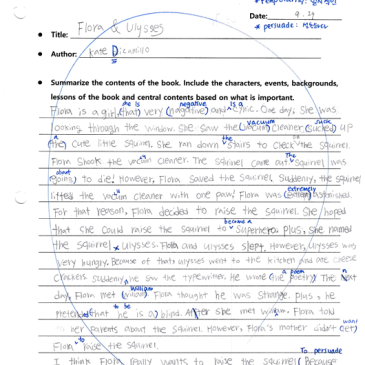 * temporarily:
Date: 9. 29
* persuade:
Title: Flora & Ulysses
Author: Kate Dicamillo
Summarize the contents of the book. Include the characters, events, backgrounds,
lessons of the book and central contents based on what is important.
she is negative is a
Flora is a girl (that) very (nagative) and cynic. One day, she was
vacuum suck
looking through the window. She saw the (vacum) cleaner (sucked) up
a the
(the) cute little squirrel. She ran down stairs to check the squirrel.
The
Flora shook the vacum cleaner. The squirrel came out. squirrel was
about
(going) to die! However, Flora saved the squirrel. Suddenly, the squirrel
extremely
lifted the vacum cleaner with one paw! Flora was astonished.
For that reason, Flora decided to raise the squirrel. She hoped
become a
that she could raise the squirrel to superhero. Plus, she named
the squirrel Ulysses. Flora and Ulysses slept. However, Ulysses was
very hungry. Because of that Ulysses went to the kitchen and ate cheese
a poem n
crackers. Suddenly, he saw the typewriter. He wrote (the poetry). The next
William
day, Flora met. Flora thought he was strange. Plus, he
to be
pretended (that he is a) blind. After she met William, Flora told
want
to her parents about the squirrel. However, Flora's mother didn't (let)
Flora to raise the squirrel.
To persuade
I think Flora really wants to raise the squirrel. (Because